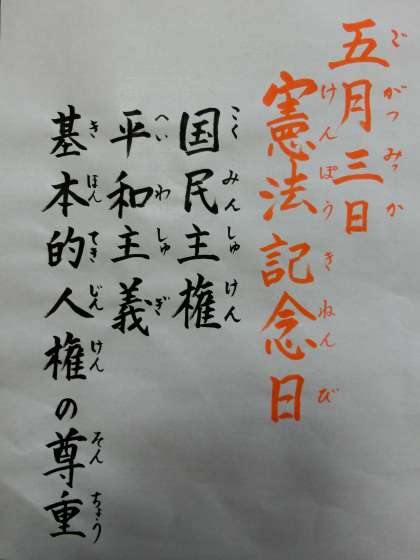 五月三日
ごがつみっか
憲法記念日
けんぽうきねんび
国民主権
こくみんしゅけん
平和主義
へいわしゅぎ
基本的人権の尊重
きほんてきじんけんそんちょう